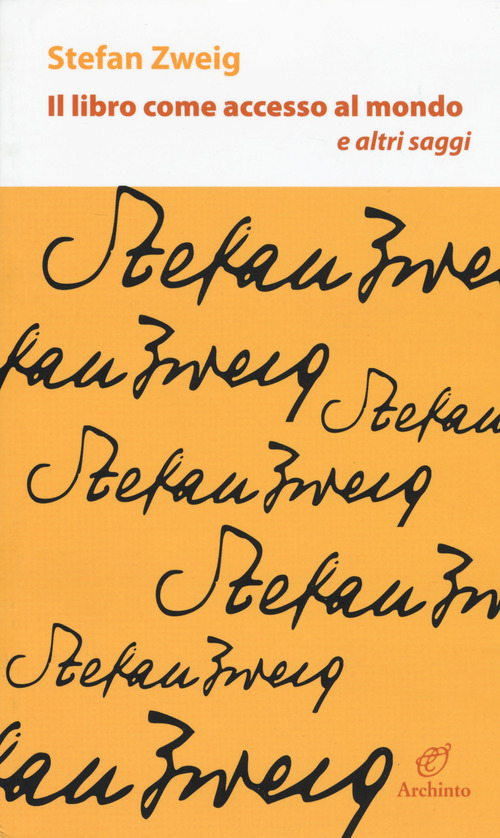 Stefan Zweig
Il libro come accesso al mondo
e altri saggi
Stefan Zweig
fan Zweig
Stefan
Stefan Zweig
Stefan Zw
Stefan Zweig
an Zweig
Archinto